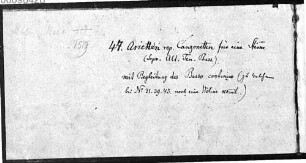 1519
47. Arietten resp Canzonetten für eine Stimme
(Sopr. Alt. Ten. Bass.)
mit Begleitung des Basso continuo (zu welchem
bei Nº 21. 29. 43. noch eine Violine kommt.)